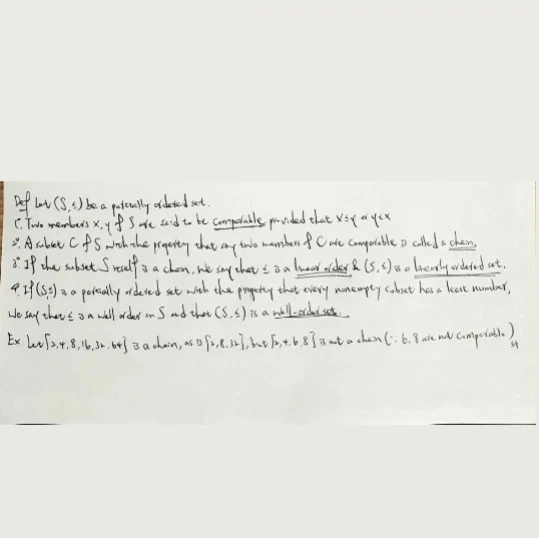 Def Let (S, ≤) be a partially ordered set.
1°. Two members x, y of S are said to be comparable provided that x≤y or y≤x
2°. A subset C of S with the property that any two members of C are comparable is called a chain.
3°. If the subset S itself is a chain, we say that ≤ is a linear order & (S, ≤) is a linearly ordered set.
4°. If (S, ≤) is a partially ordered set with the property that every nonempty subset has a least number,
we say that ≤ is a well order on S and that (S, ≤) is a well-order set.
Ex Let {2, 4, 8, 16, 32, 64} is a chain, as is {2, 8, 32}, but {2, 4, 6, 8} is not a chain (∵ 6, 8 are not comparable)